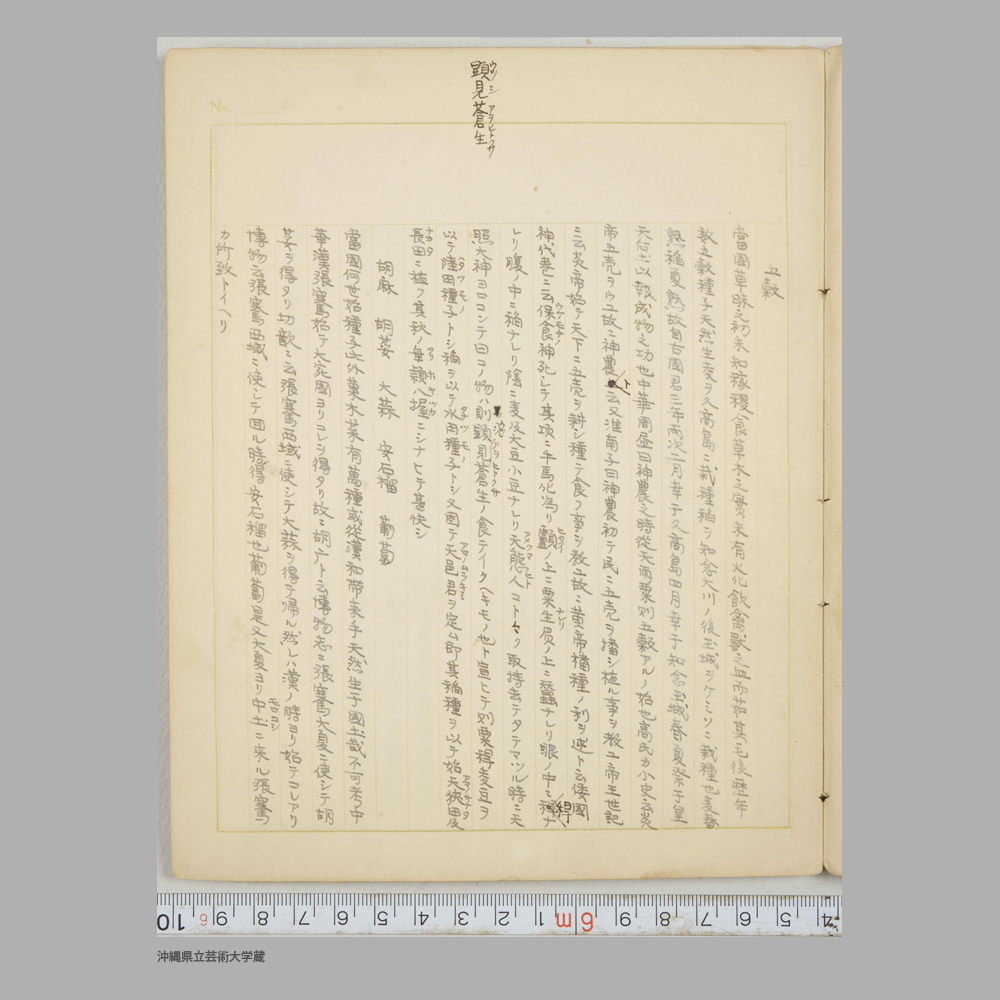 顕見蒼生
ウツシ アヲヒトクサ
五穀
當国草昧之初未知稼稷食草木之實未有火化飲禽獣之血而茹其毛後歴年
数五穀種子天然生麦ヲ久高島ニ栽種稲ヲ知念大川ノ後玉城ヲケミソニ栽種也麦春
熟稲夏熟故自古国君三年両次二月幸于久高島四月幸于知念玉城春夏祭于
天仁以報成物之功也中華周昼曰神農之時従天雨粟則五穀アルノ始也高氏カ小史云炎
帝五売ヲウユ故ニ神農ト云又淮南子曰神農初テ民ニ五売ヲ播シ植ル事ヲ教ユ帝王世記
ニ云炎帝始テ天下ニ五売ヲ耕シ種テ食フ事ヲ教ユ故ニ黄帝播種ノ利ヲ述ト云倭国
神代巻ニ云保食神死シテ其頂ニ牛馬化為リ顱ノ上ニ粟生眉ノ上ニ蚕ナレリ眼ノ中ニ稗ナ
レリ腹ノ中ニ稲ナレリ陰ニ麦及大豆小豆ナレリ天熊人コトヽク取持去テタテマツル時ニ天
照大神ヨロコンテ曰コノ物ハ則顕見蒼生ノ食テイクヘキモノ也ト宣ヒテ則粟稗麦豆ヲ
以テ陸田種子トシ稲ヲ以テ水田種子トシ又因テ天邑君ヲ定ム即其稲種ヲ以テ始天狭田及
長田ニ植フ其秋ノ垂穎八握ニシナヒテ甚快シ
胡麻 胡荽 大蒜 安石榴 葡萄
當国何世始種子之外菓木菜有萬種或従漢和帯来乎天然生于国土哉不可考中
華漢張騫始テ大宛国ヨリコレヲ得タリ故ニ胡ト云博物志ニ張騫大夏ニ使シテ胡
荽ヲ得タリ切韻ニ云張騫西域ニ使シテ大蒜ヲ得テ帰ル然レハ漢ノ時ヨリ始テコレアリ
博物云張騫西域ニ使シテ回ル時得安石榴也葡萄是又大夏ヨリ中土ニ来ル張騫
カ所致トイヘリ
沖縄県立芸術大学蔵